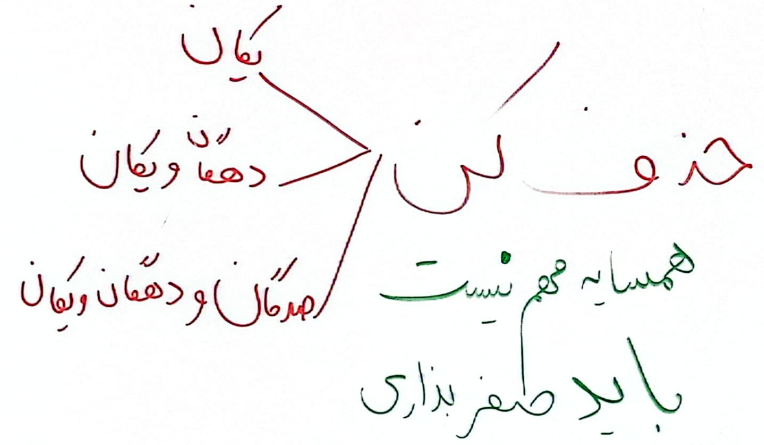 حذف کن
یکان
دهگان و یکان
صدگان و دهگان و یکان
همسایه مهم نیست
باید صفر بذاری